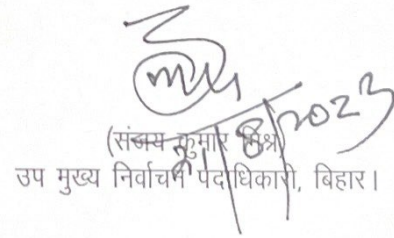 21/8/2023
(संजय कुमार मिश्र)
उप मुख्य निर्वाचन पदाधिकारी, बिहार।